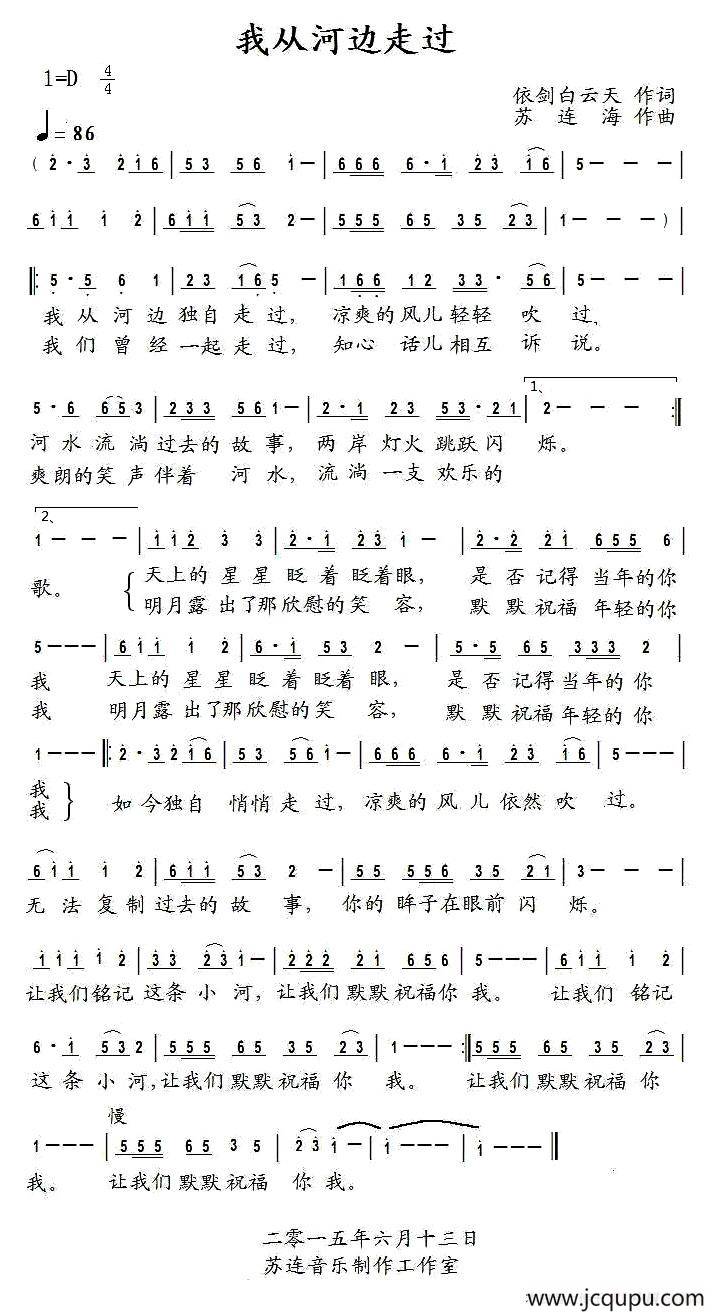 我从河边走过
1=D 4/4
依剑白云天 作词
♩= 86
苏 连 海 作曲
( 2· 3 2 1 6 | 5 3 5 6 1 － | 6 6 6 6· 1 2 3 1 6 | 5 － － － |
6 1 1 1 2 | 6 1 1 5 3 2 － | 5 5 5 6 5 3 5 2 3 | 1 － － ) |
‖: 5· 5 6 1 | 2 3 1 6 5 － | 1 6 6 1 2 3 3· | 5 6 5 － － |
我 从 河 边 独自 走 过， 凉爽的风儿轻轻 吹 过，
我 们 曾 经 一起 走 过， 知心 话儿相互 诉 说。
5· 6 6 5 3 | 2 3 3 5 6 1 － | 2· 1 2 3 5 3· 2 1 | 1、 2 － － :‖
河 水 流 淌 过去的 故 事，两 岸 灯火 跳跃闪 烁。
爽朗的笑 声 伴着 河 水，流 淌 一支 欢乐的
2、
1 － － － | 1 1 2 3 3 | 2· 1 2 3 1 － | 2· 2 2 1 6 5 5 6 |
歌。 天上的 星 星 眨 着 眨着眼， 是 否 记得 当年的你
明月露 出了那欣慰的笑 容， 默 默 祝福 年轻的你
5 － － － | 6 1 1 1 2 | 6· 1 5 3 2 － | 5· 5 6 5 3 3 3 2 |
我 天上的 星 星 眨 着 眨着 眼， 是 否 记得当年的 你
我 明月露 出了那欣慰的笑 容， 默 默 祝福年轻的 你
1 － － － ‖: 2· 3 2 1 6 | 5 3 5 6 1 － | 6 6 6 6· 1 2 3 1 6 | 5 － － － |
我
我 如 今独自 悄悄 走 过，凉爽的 风 儿 依然 吹 过。
6 1 1 1 2 | 6 1 1 5 3 2 － | 5 5 5 6 3 3 5 2 1 | 3 － － － |
无 法 复 制 过去的 故 事， 你的 眸子在眼前 闪 烁。
1 1 1 1 2 | 3 3 2 3 1 － | 2 2 2 2 1 6 5 5 6 | 5 － － － | 1 1 1 1 2 |
让我们 铭记 这条 小 河，让我们 默默 祝福你 我。 让我们 铭记
6· 1 5 3 2 | 5 5 5 6 5 3 5 2 3 | 1 － － － :‖ 5 5 5 6 5 3 5 2 3 |
这 条 小 河，让我们 默默 祝福 你 我。 让我们 默默 祝福 你
慢
1 － － － | 5 5 5 6 5 3 5 | 2 3 1 － | 1 － － － | 1 － － － ‖
我。 让我们 默默 祝福 你 我。
二零一五年六月十三日
苏连音乐制作工作室
www.jcqupu.com